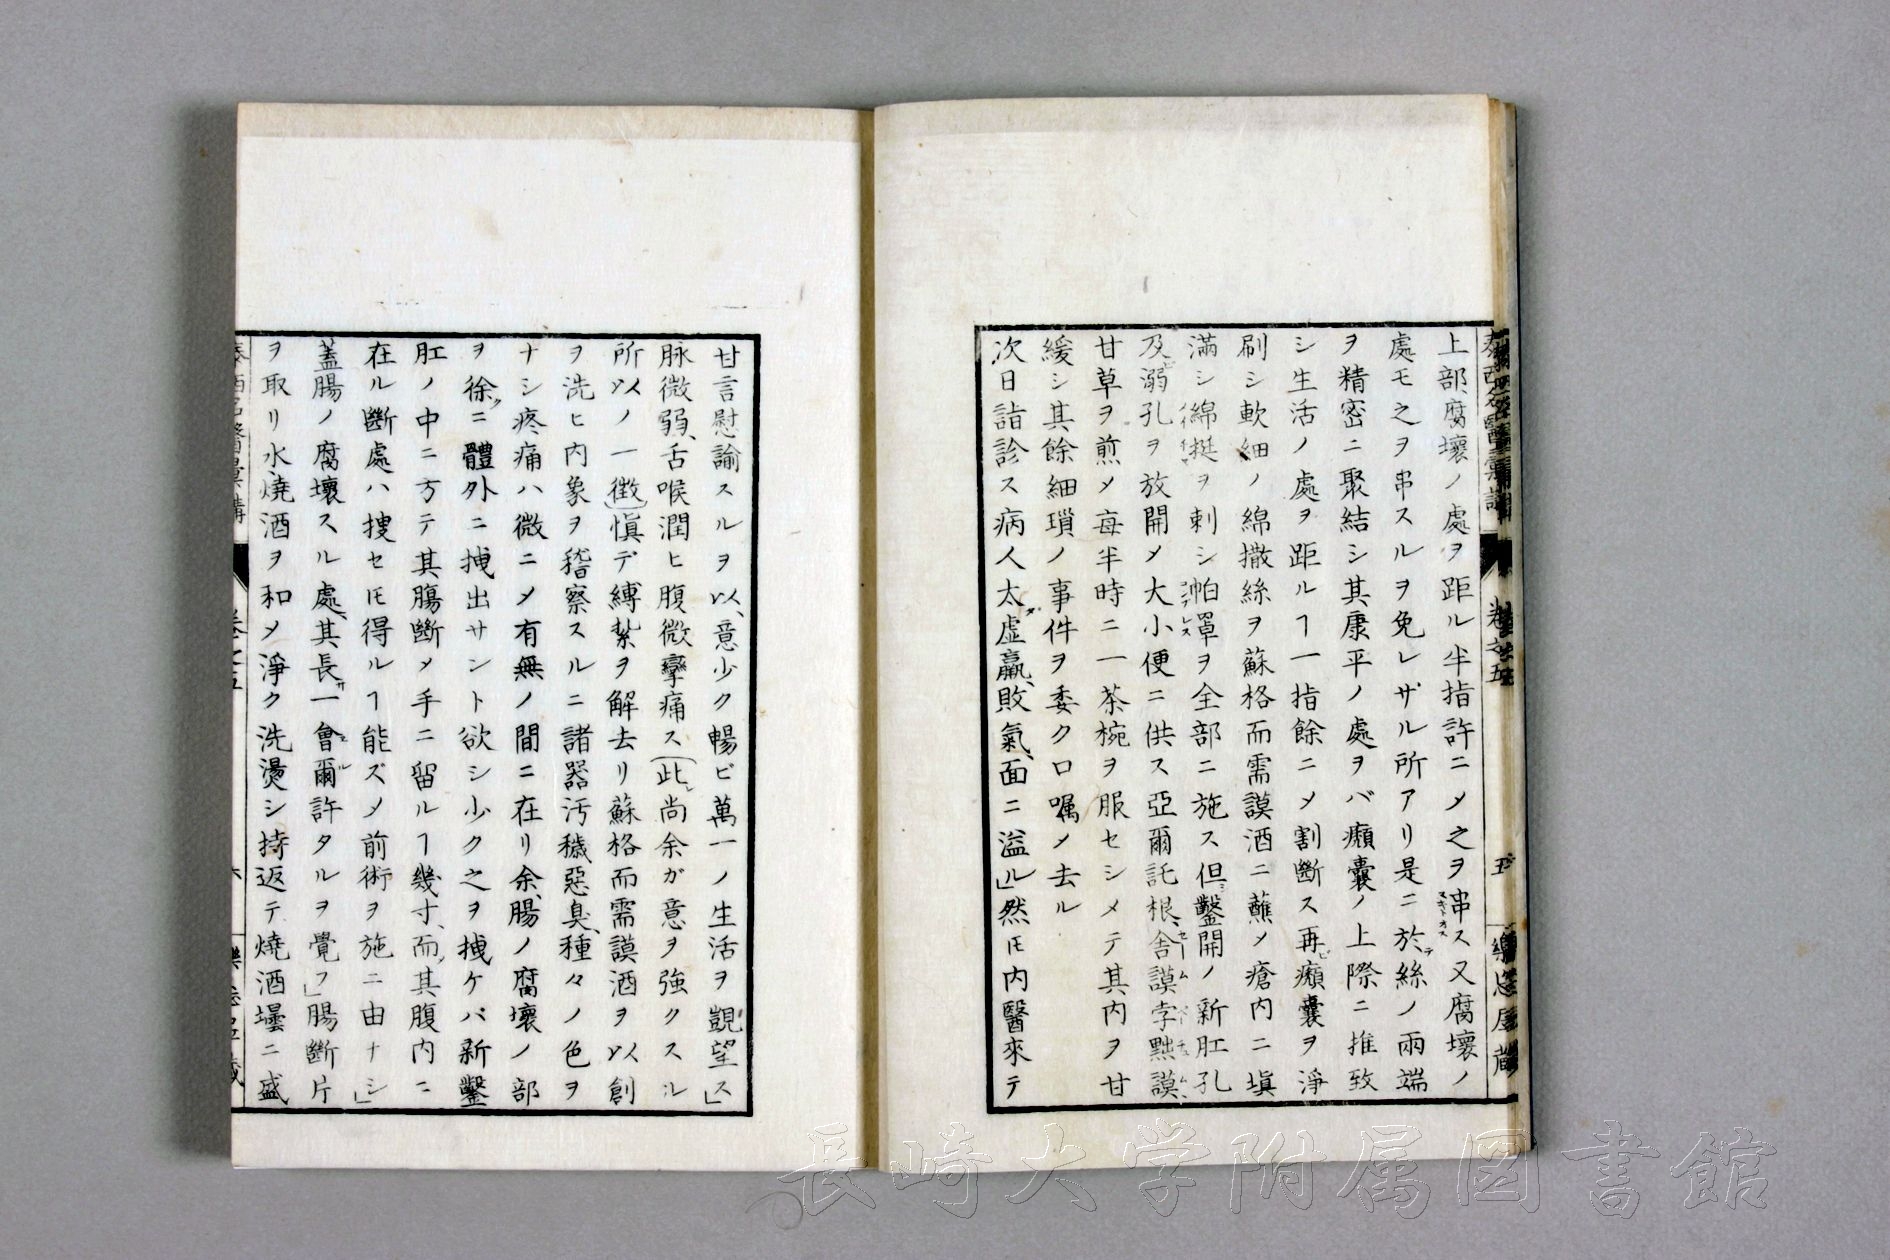 上部腐壞ノ處ヲ距ル半指許ニ〆之ヲ串ス又腐壞ノ
處モ之ヲ串スルヲ免レザル所アリ是ニ於テ絲ノ兩端
ヲ精密ニ聚結シ其康平ノ處ヲバ癩囊ノ上際ニ推致
シ生活ノ處ヲ距ルヿ一指餘ニ〆割斷ス再ビ癩囊ヲ淨
刷シ軟細ノ綿撒絲ヲ蘇格而需謨酒ニ蘸〆瘡內ニ塡
滿シ綿挺ヲ刺シ帕罩ヲ全部ニ施ス但シ鑿開ノ新肛孔
及溺孔ヲ放開〆大小便ニ供ス亞爾託根、舎謨孛黜謨、
甘草ヲ煎〆每半時ニ一茶椀ヲ服セシメテ其內ヲ甘
緩シ其餘細瑣ノ事件ヲ委ク口囑〆去ル
次日詣診ス病人太ダ虛羸、敗氣、面ニ溢ル」然ドモ內醫來テ
甘言慰諭スルヲ以、意少ク暢ビ萬一ノ生活ヲ覬望ス」
脉微弱、舌喉潤ヒ腹微攣痛ス(此レ尚余ガ意ヲ強クスル
所以ノ一徵)愼デ縛紮ヲ解去リ蘇格而需謨酒ヲ以創
ヲ洗ヒ內象ヲ稽察スルニ諸器汚穢惡臭、種々ノ色ヲ
ナシ疼痛ハ微ニ〆有無ノ間ニ在リ余、腸ノ腐壞ノ部
ヲ徐ニ體外ニ拽出サント欲シ少ク之ヲ拽ケバ新鑿
肛ノ中ニ方テ其腸斷〆手ニ留ルヿ幾寸、而〆其腹內ニ
在ル斷處ハ搜セドモ得ルヿ能ズ〆前術ヲ施ニ由ナシ」
蓋腸ノ腐壞スル處、其長サ一會爾許タルヲ覺フ」腸斷片
ヲ取リ水燒酒ヲ和〆淨ク洗盪シ持返テ燒酒壜ニ盛